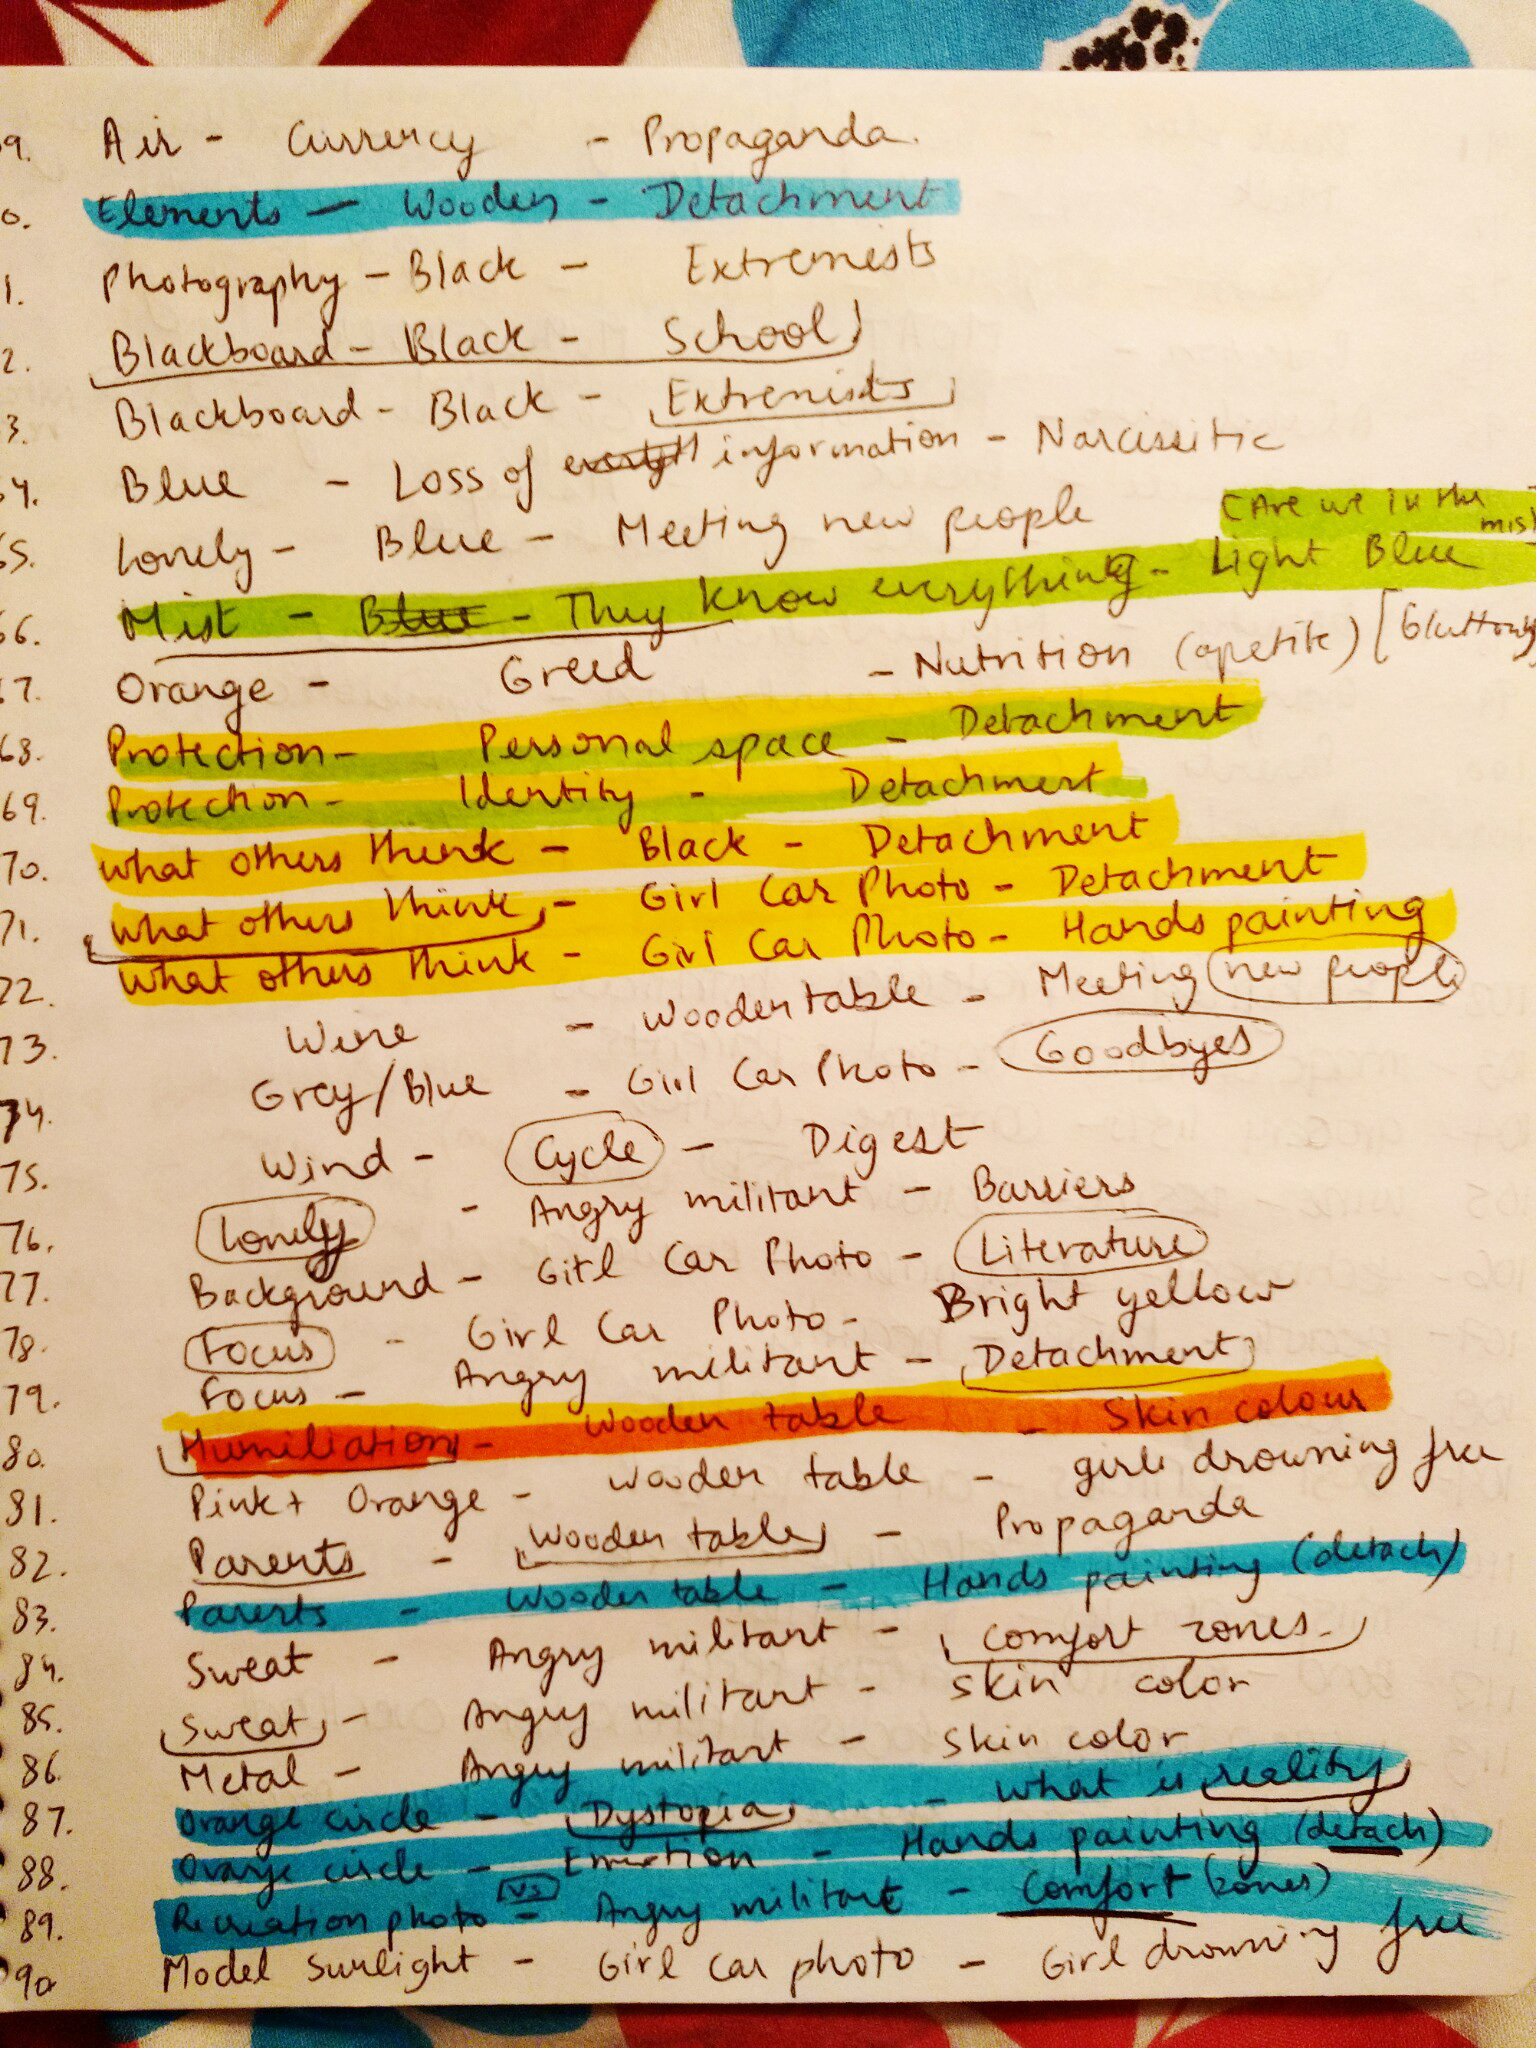 9. Air - Currency - Propaganda.
0. Elements - Wooden - Detachment
1. Photography - Black - Extremists
2. Blackboard - Black - School
3. Blackboard - Black - Extremists
54. Blue - Loss of information - Narcissitic
65. Lonely - Blue - Meeting new people
(Are we in the mist
66. Mist - Blue - They know everything - Light Blue
67. Orange - Greed - Nutrition (apetite) [Gluttony
68. Protection - Personal space - Detachment
69. Protection - Identity - Detachment
70. What others think - Black - Detachment
71. What others think - Girl Car Photo - Detachment
72. What others think - Girl Car Photo - Hands painting
73. Wine - Wooden table - Meeting new people
74. Grey/Blue - Girl Car Photo - Goodbyes
75. Wind - Cycle - Digest
76. Lonely - Angry militant - Barriers
77. Background - Girl Car Photo - Literature
78. Focus - Girl Car Photo - Bright yellow
79. Focus - Angry militant - Detachment
80. Humiliation - Wooden table - Skin colour
81. Pink + Orange - Wooden table - girl drowning free
82. Parents - Wooden table - Propaganda
83. Parents - Wooden table - Hands painting (detach)
84. Sweat - Angry militant - comfort zones.
85. Sweat - Angry militant - skin color
86. Metal - Angry militant - skin color
87. Orange circle - Dystopia - what is reality
88. Orange circle - Emotion - Hands painting (detach)
89. Recreation photo - Vs Angry militant - Comfort (zones)
90 Model Sunlight - Girl Car photo - Girl drowning free